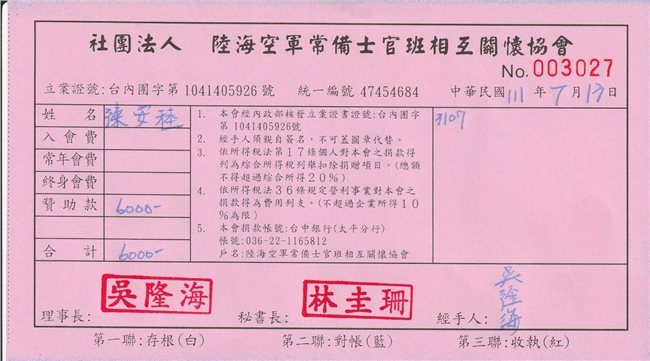 社團法人 陸海空軍常備士官班相互關懷協會
No. 003027
立案證號:台內團字第1041405926號 統一編號 47454684 中華民國 111 年 7 月 13 日
姓名 陳安穩
入會費
常年會費
終身會費
贊助款 6000-
合計 6000-
1. 本會經內政部核發立案證書證號:台內團字
第1041405926號
2. 經手人須親自簽名,不可蓋圖章代替。
3. 依所得稅法第17條個人對本會之捐款得
列為綜合所得稅列舉扣除捐贈項目。(總額
不得超過綜合所得20%)
4. 依所得稅法36條規定營利事業對本會之
捐款得為費用列支。(不超過企業所得10
%為限)
5. 本會捐款帳號:台中銀行(太平分行)
帳號:036-22-1165812
戶名:陸海空軍常備士官班相互關懷協會
3107
理事長: 吳隆海 秘書長: 林圭珊 經手人: 吳隆海
第一聯:存根(白) 第二聯:對帳(藍) 第三聯:收執(紅)